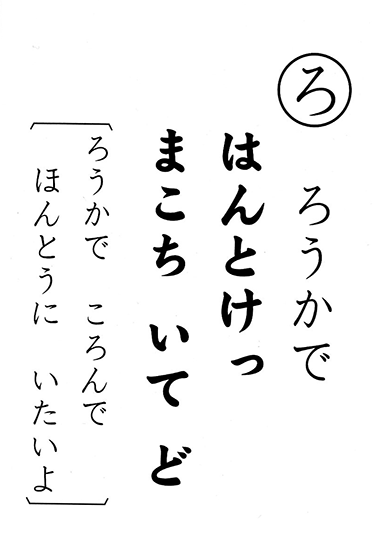 ろ
ろうかで
はんとけっ
まこち いて ど
ろうかで ころんで
ほんとうに いたいよ